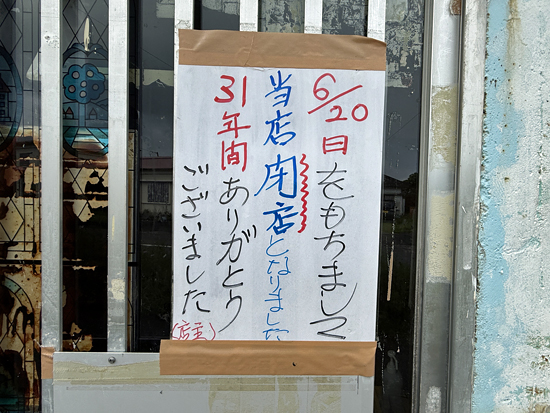 6/20日をもちまして
当店閉店となりました
31年間ありがとう
ございました
(店主)